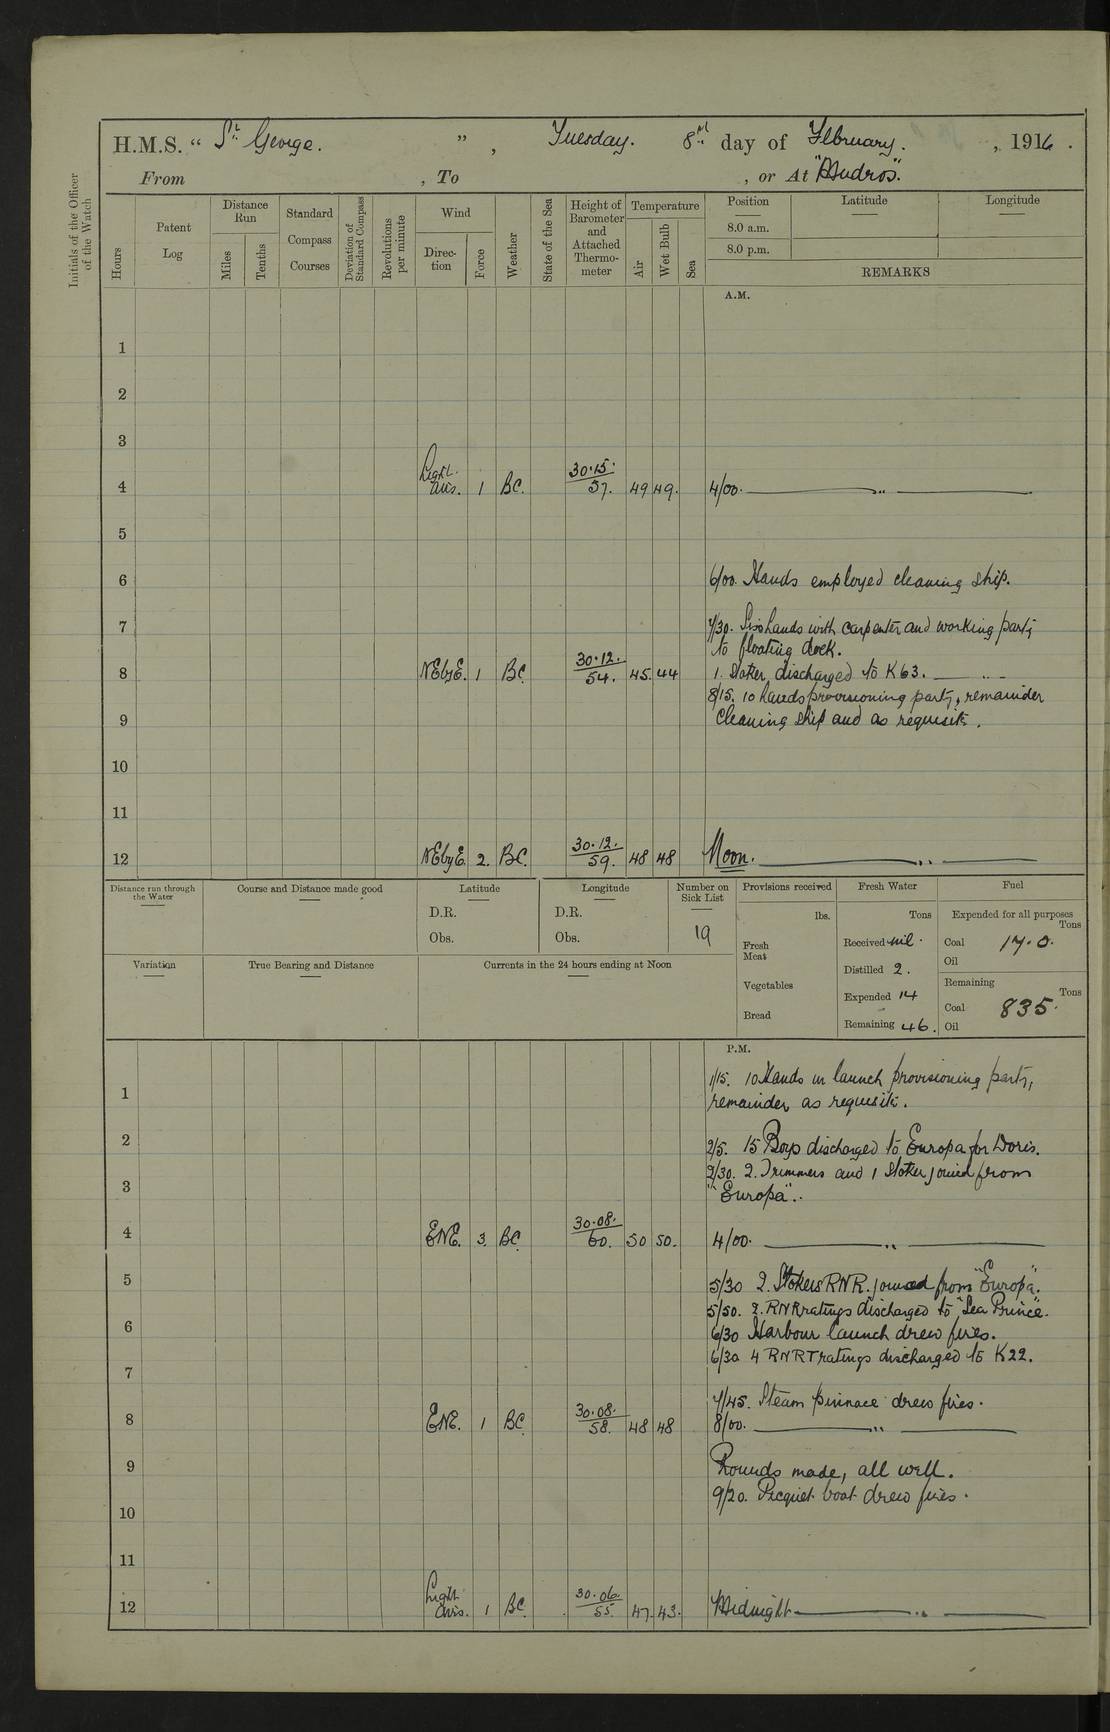 H.M.S. “ St George. ” , Tuesday. 8th day of February. , 1916 .
From , To , or At "Mudros".
Initials of the Officer of the Watch
Hours
Patent Log
Distance Run
Miles
Tenths
Standard Compass Courses
Deviation of Standard Compass
Revolutions per minute
Wind
Direction
Force
Weather
State of the Sea
Height of Barometer and Attached Thermometer
Temperature
Air
Wet Bulb
Sea
Position
Latitude
Longitude
8.0 a.m.
8.0 p.m.
REMARKS
A.M.
1
2
3
4 Light airs. 1 BC. 30.15. 57. 49 49. 4/00. „
5
6 6/00. Hands employed cleaning ship.
7 7/30. Six hands with carpenter and working party
to floating dock.
8 NEbyE. 1 BC. 30.12. 54. 45. 44 1. Stoker discharged to K63. „
8/15. 10 hands provisioning party, remainder
9 cleaning ship and as requisite.
10
11
12 NEbyE. 2. BC. 30.12. 59. 48 48 Noon. „
Distance run through the Water
Course and Distance made good
Latitude
D.R.
Obs.
Longitude
D.R.
Obs.
Number on Sick List
19
Provisions received
lbs.
Fresh Meat
Vegetables
Bread
Fresh Water
Tons
Received nil.
Distilled 2.
Expended 14
Remaining 46.
Fuel
Expended for all purposes
Tons
Coal 17.0.
Oil
Remaining
Tons
Coal 835.
Oil
Variation
True Bearing and Distance
Currents in the 24 hours ending at Noon
P.M.
1/15. 10 Hands in launch provisioning party,
1 remainder as requisite.
2 2/5. 15 Boys discharged to Europa for Doris.
2/30. 2. Trimmers and 1 Stoker joined from
3 "Europa".
4 ENE. 3. BC. 30.08. 60. 50 50. 4/00. „
5 5/30 2. Stokers RNR. joined from "Europa".
5/50. 2. RNR ratings discharged to "Sea Prince".
6 6/30 Harbour launch drew fires.
6/30 4 RNRT ratings discharged to K22.
7
7/45. Steam pinnace drew fires.
8 ENE. 1 BC. 30.08. 58. 48 48 8/00. „
9 Rounds made, all well.
9/20. Picquet boat drew fires.
10
11
12 Light airs. 1 BC. 30.06. 55. 47. 43. Midnight „